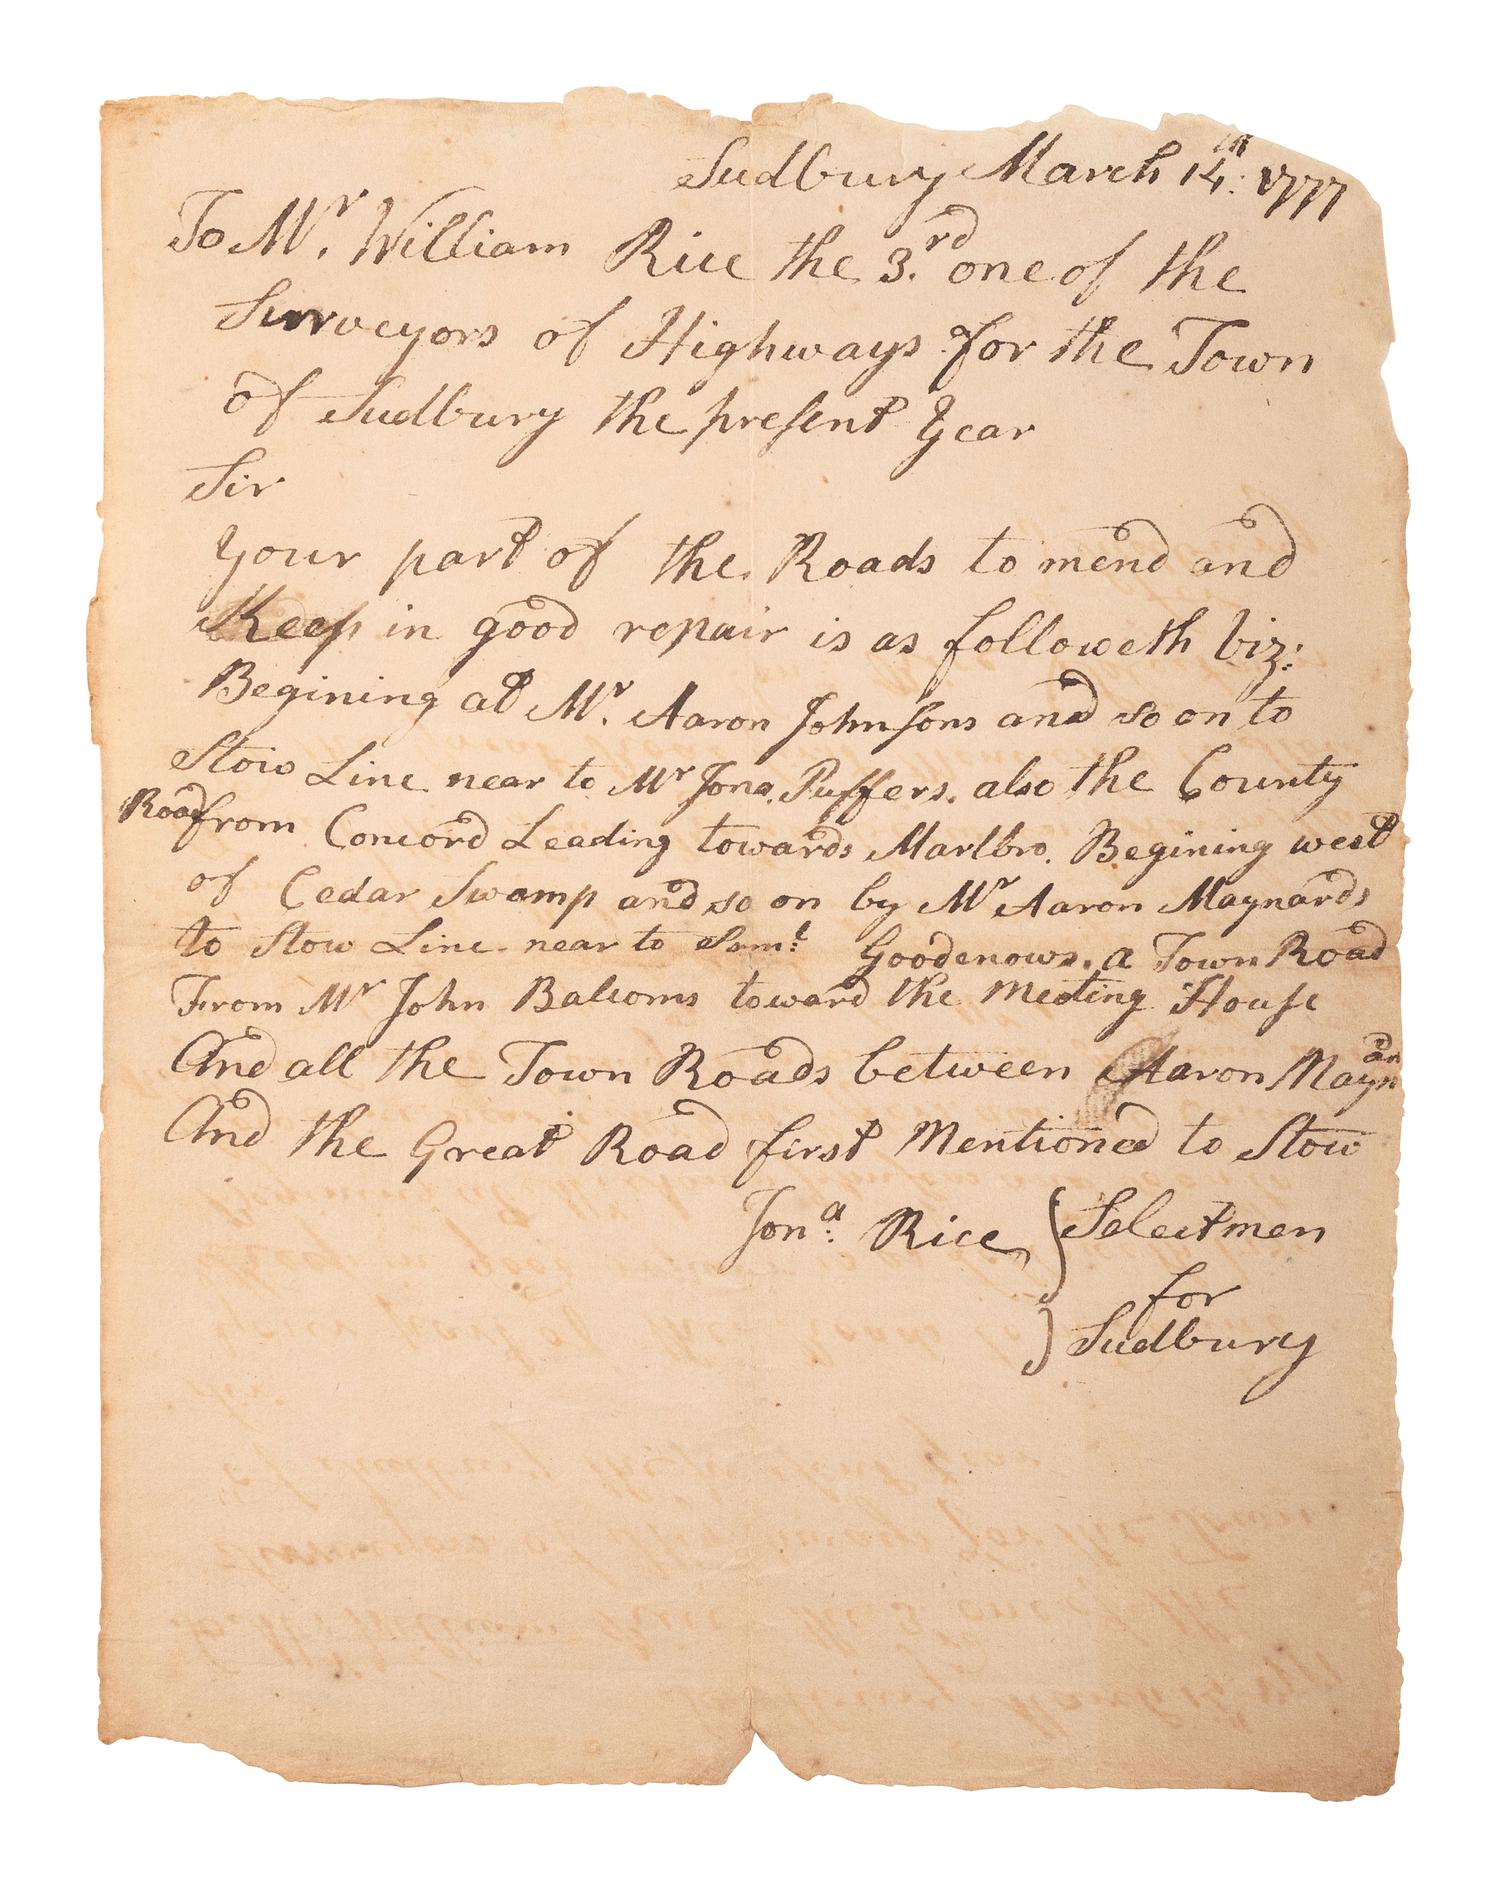 Sudbury March 14th: 1777
To Mr. William Rice the 3.rd one of the
Surveyors of Highways for the Town
of Sudbury the preſent Year
Sir
Your part of the Roads to mend and
Keep in good repair is as followeth viz:
Begining at Mr. Aaron Johnſons and so on to
Stow Line near to Mr Jona. Puffers. also the County
Road from Concord Leading towards Marlbro. Begining west
of Cedar Swamp and so on by Mr Aaron Maynards
to Stow Line near to Saml: Goodenows. a Town Road
From Mr John Balcoms toward the Meeting Houſe
And all the Town Roads between Aaron Mayn
And the Great Road first Mentioned to Stow
Jona: Rice } Selectmen
for
Sudbury